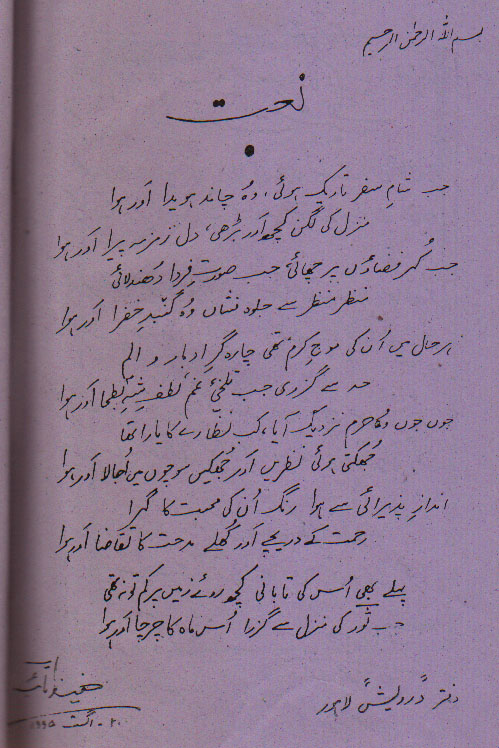 بسم اللہ الرحمٰن الرحیم
نعت
جب شامِ سفر تاریک ہوئی، وہ چاند ہویدا اَور ہوا
منزل کی لگن کچھ اَور بڑھی، دل زمزمہ پیرا اَور ہوا
جب کُہر فضاؤں پر چھائی، جب صورتِ فردا دُھندلائی
منظر منظر سے جلوہ فشاں وہ گنبدِ خضرا اَور ہوا
ہر حال میں اُن کی موجِ کرم تھی چارہ گرِ ادبار و الم
حد سے گزری جب تلخیِ غم، لطفِ شہِ بطحا اَور ہوا
جوں جوں وہ حرم نزدیک آیا، کب نظارے کا یارا تھا
جُھکتی ہوئی نظریں اَور جُھکیں سوچوں میں اُجالا اَور ہوا
اندازِ پذیرائی سے ہوا رنگ اُن کی محبت کا گہرا
رحمت کے دریچے اَور کُھلے مدحت کا تقاضا اَور ہوا
پہلے بھی اُس کی تابانی کچھ روئے زمیں پر کم تو نہ تھی
جب ثَور کی منزل سے گزرا اُس ماہ کا چرچا اَور ہوا
حفیظ تائب
۲۰۔ اگست ۱۹۹۵
دفتر "درویش" لاہور